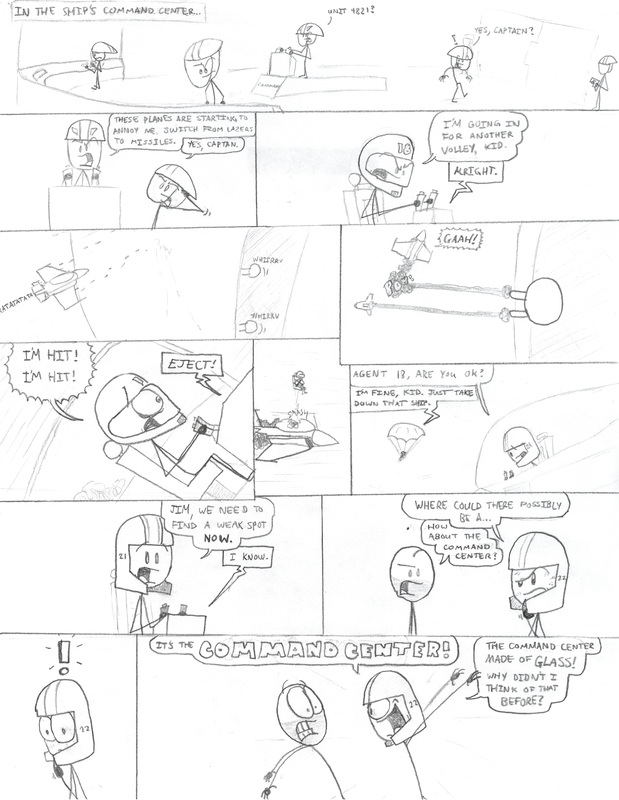 IN THE SHIP'S COMMAND CENTER...
UNIT 4221?
!
YES, CAPTAIN?
THESE PLANES ARE STARTING TO
ANNOY ME. SWITCH FROM LAZERS
TO MISSILES.
YES, CAPTAN.
I'M GOING IN
FOR ANOTHER
VOLLEY, KID.
ALRIGHT.
18
RATATATATATA
WHIRRV
WHIRRV
GAAH!
BOOM
I'M HIT!
I'M HIT!
EJECT!
AGENT 18, ARE YOU OK?
I'M FINE, KID. JUST TAKE
DOWN THAT SHIP.
JIM, WE NEED TO
FIND A WEAK SPOT
NOW.
I KNOW.
21
WHERE COULD THERE POSSIBLY
BE A...
HOW
ABOUT THE
COMMAND
CENTER?
22
!
22
IT'S THE COMMAND CENTER!
22
THE COMMAND CENTER
MADE OF GLASS!
WHY DIDN'T I
THINK OF THAT
BEFORE?